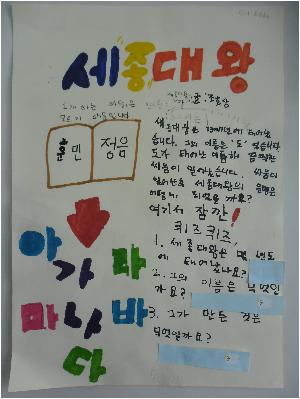 세종대왕
훈민
정음
세종대왕은 1397년에 태어났
습니다. 그의 이름은 '도' 였습니다
도가 태어난 여름에 끔찍한
싸움이 일어났습니다. 싸움이
일어난 후 세종대왕의 운명은
어떻게 되었을까요?
여기서 잠깐!
퀴즈퀴즈,
1. 세종대왕은 몇 년도
에 태어났나요?
2. 그의 이름은 무엇인
가요?
3. 그가 만든 것은
무엇일까요?
아
가
라
마
나
바
다